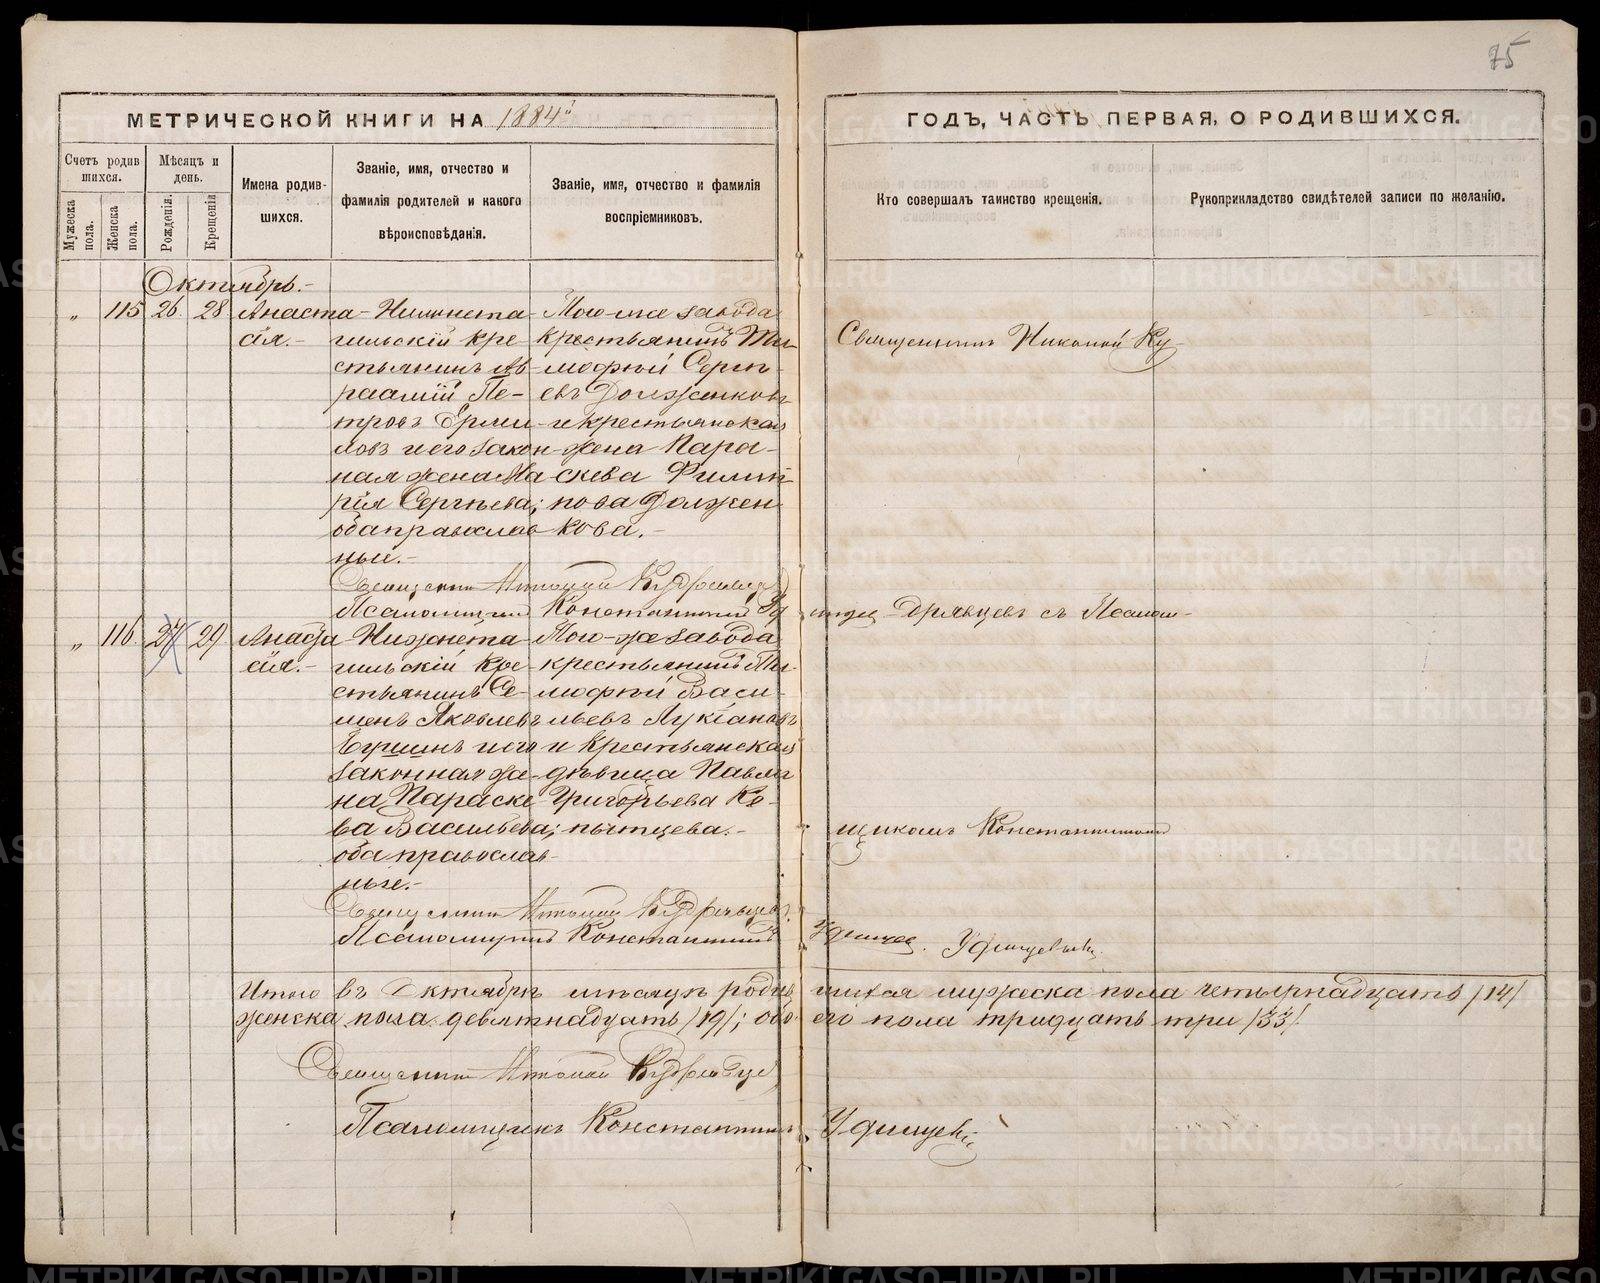 75
МЕТРИЧЕСКОЙ КНИГИ НА 1884й
ГОДЪ, ЧАСТЬ ПЕРВАЯ, О РОДИВШИХСЯ.
Счетъ родив
шихся.
Мужеска
пола.
Женска
пола.
Мѣсяцъ и
день.
Рожденія.
Крещенія
Имена родив-
шихся.
Званіе, имя, отчество и
фамилія родителей и какого
вѣроисповѣданія.
Званіе, имя, отчество и фамилія
воспріемниковъ.
Кто совершалъ таинство крещенія.
Рукоприкладство свидѣтелей записи по желанію.
Октябрь.-
„ 115 26 28
Анаста-
сія.-
Нижнета-
гильскій кре-
стьянинъ Ав-
раамій Пе-
тровъ Ерми-
ловъ и его закон-
ная жена Ма
рія Сергѣева;
оба православ
ные.-
Того-же завода
крестьянинъ Ти-
моѳей Сергѣ-
евъ Долженковъ
и крестьянская
жена Пара-
скева Филип-
пова Должен
кова.-
Псаломщикъ Константинъ
„ 116 27 29
Анаста
сія.-
Нижнета-
гильскій кре-
стьянинъ Се-
менъ Яковлевъ
и его
законная же-
на Параске
ва Васильева;
оба православ-
ные.-
Того-же завода
крестьянинъ Ти-
моѳей Васи-
льевъ Лукіановъ
и крестьянская
дѣвица Павла
Григорьева Ко-
пытцева.-
Псаломщикъ Константинъ
Священникъ Николай Ку-
дрявцевъ съ Псалом-
щикомъ Константиномъ
Удинцевымъ.
Итого въ Октябрѣ мѣсяцѣ родив шихся мужеска пола четырнадцать /14/
женска пола девятнадцать /19/; обо его пола тридцать три /33/.
Священникъ Николай Кудрявцевъ
Псаломщикъ Константинъ Удинцевъ
METRIKI.GASO-URAL.RU